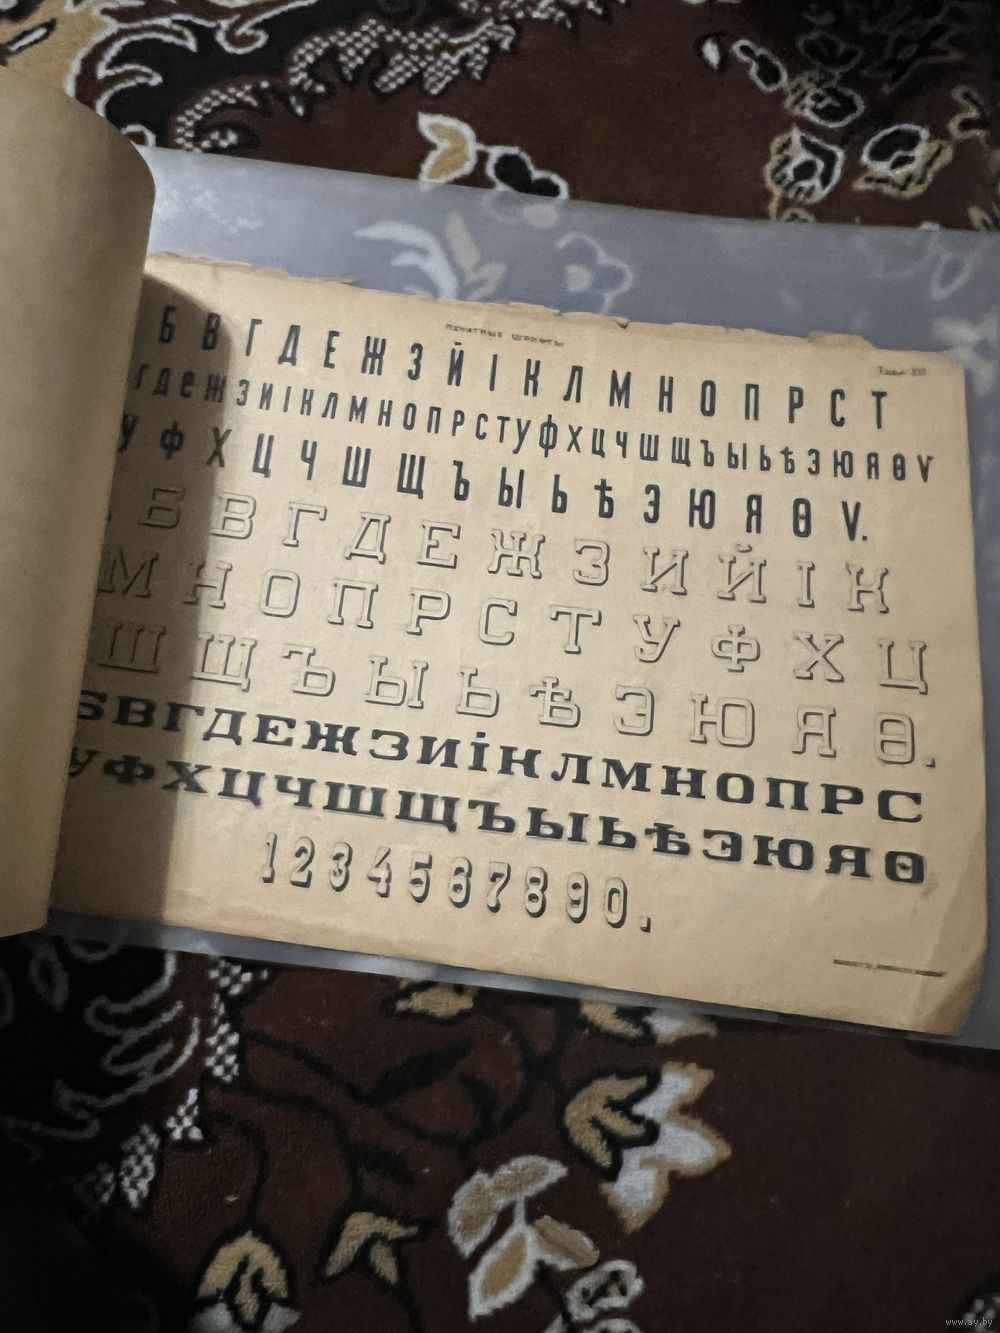 ПЕЧАТНЫЕ ШРИФТЫ
Б В Г Д Е Ж З Й І К Л М Н О П Р С Т
Г Д Е Ж З И І К Л М Н О П Р С Т У Ф Х Ц Ч Ш Щ Ъ Ы Ь Ѣ Э Ю Я Ѳ Ѵ
У Ф Х Ц Ч Ш Щ Ъ Ы Ь Ѣ Э Ю Я Ѳ Ѵ.
Б В Г Д Е Ж З И Й І К
М Н О П Р С Т У Ф Х Ц
Ш Щ Ъ Ы Ь Ѣ Э Ю Я Ѳ.
БВГДЕЖЗИІКЛМНОПРС
УФХЦЧШЩЪЫЬѢЭЮЯѲ
1234567890.
www.ay.by